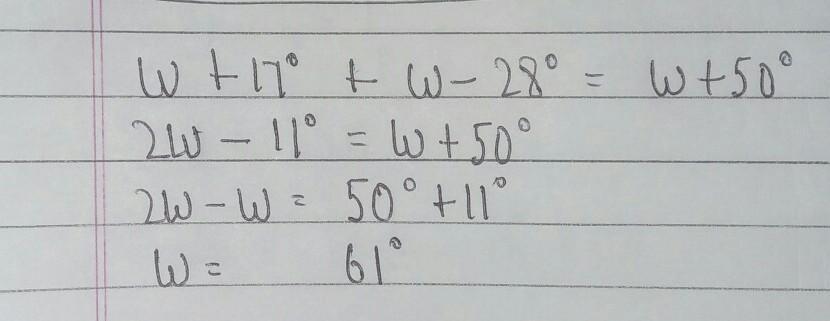 W + 17° + W - 28° = W + 50°
2W - 11° = W + 50°
2W - W = 50° + 11°
W = 61°